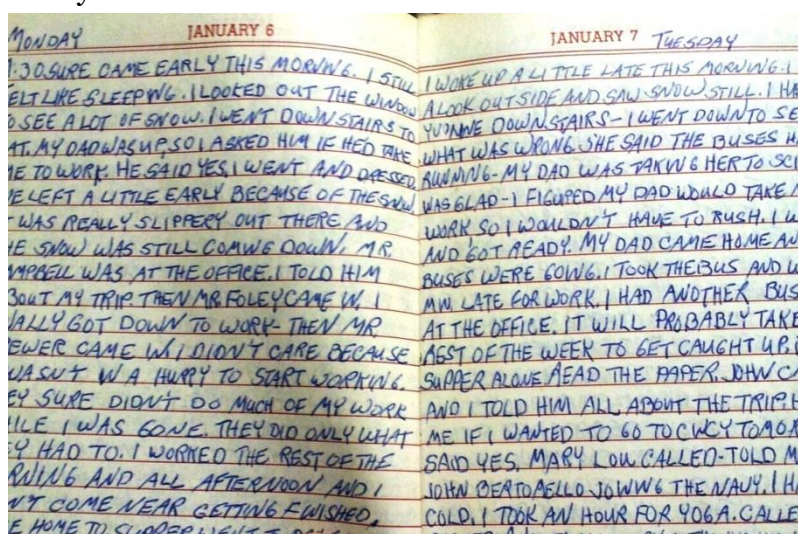 MONDAY JANUARY 6
:30 SURE CAME EARLY THIS MORNING. I STILL
ELT LIKE SLEEPING. I LOOKED OUT THE WINDOW
O SEE A LOT OF SNOW. I WENT DOWNSTAIRS TO
AT. MY DAD WAS UP, SO I ASKED HIM IF HE'D TAKE
E TO WORK. HE SAID YES, I WENT AND DRESSED.
E LEFT A LITTLE EARLY BECAUSE OF THE SNOW.
WAS REALLY SLIPPERY OUT THERE AND
E SNOW WAS STILL COMING DOWN. MR.
MPBELL WAS AT THE OFFICE. I TOLD HIM
BOUT MY TRIP. THEN MR FOLEY CAME IN. I
NALLY GOT DOWN TO WORK- THEN MR
EWER CAME IN. I DIDN'T CARE BECAUSE
WASN'T IN A HURRY TO START WORKING.
EY SURE DIDN'T DO MUCH OF MY WORK
ILE I WAS GONE. THEY DID ONLY WHAT
EY HAD TO. I WORKED THE REST OF THE
RNING AND ALL AFTERNOON AND I
N'T COME NEAR GETTING FINISHED.
E HOME TO SUPPER
JANUARY 7 TUESDAY
I WOKE UP A LITTLE LATE THIS MORNING. I
A LOOK OUTSIDE AND SAW SNOW STILL. I HA
YVONNE DOWNSTAIRS- I WENT DOWN TO SE
WHAT WAS WRONG. SHE SAID THE BUSES H
RUNNING- MY DAD WAS TAKING HER TO SC
WAS GLAD- I FIGURED MY DAD WOULD TAKE
WORK, SO I WOULDN'T HAVE TO RUSH. I W
AND GOT READY. MY DAD CAME HOME AN
BUSES WERE GOING. I TOOK THE BUS AND W
MIN. LATE FOR WORK. I HAD ANOTHER BUS
AT THE OFFICE. IT WILL PROBABLY TAKE
REST OF THE WEEK TO GET CAUGHT UP.
SUPPER ALONE. READ THE PAPER. JOHN CA
AND I TOLD HIM ALL ABOUT THE TRIP. H
ME IF I WANTED TO GO TO CINCY TOMOR
SAID YES. MARY LOU CALLED- TOLD M
JOHN BERTOPELLO JOINING THE NAVY. I H
COLD. I TOOK AN HOUR FOR YOGA. CALLE